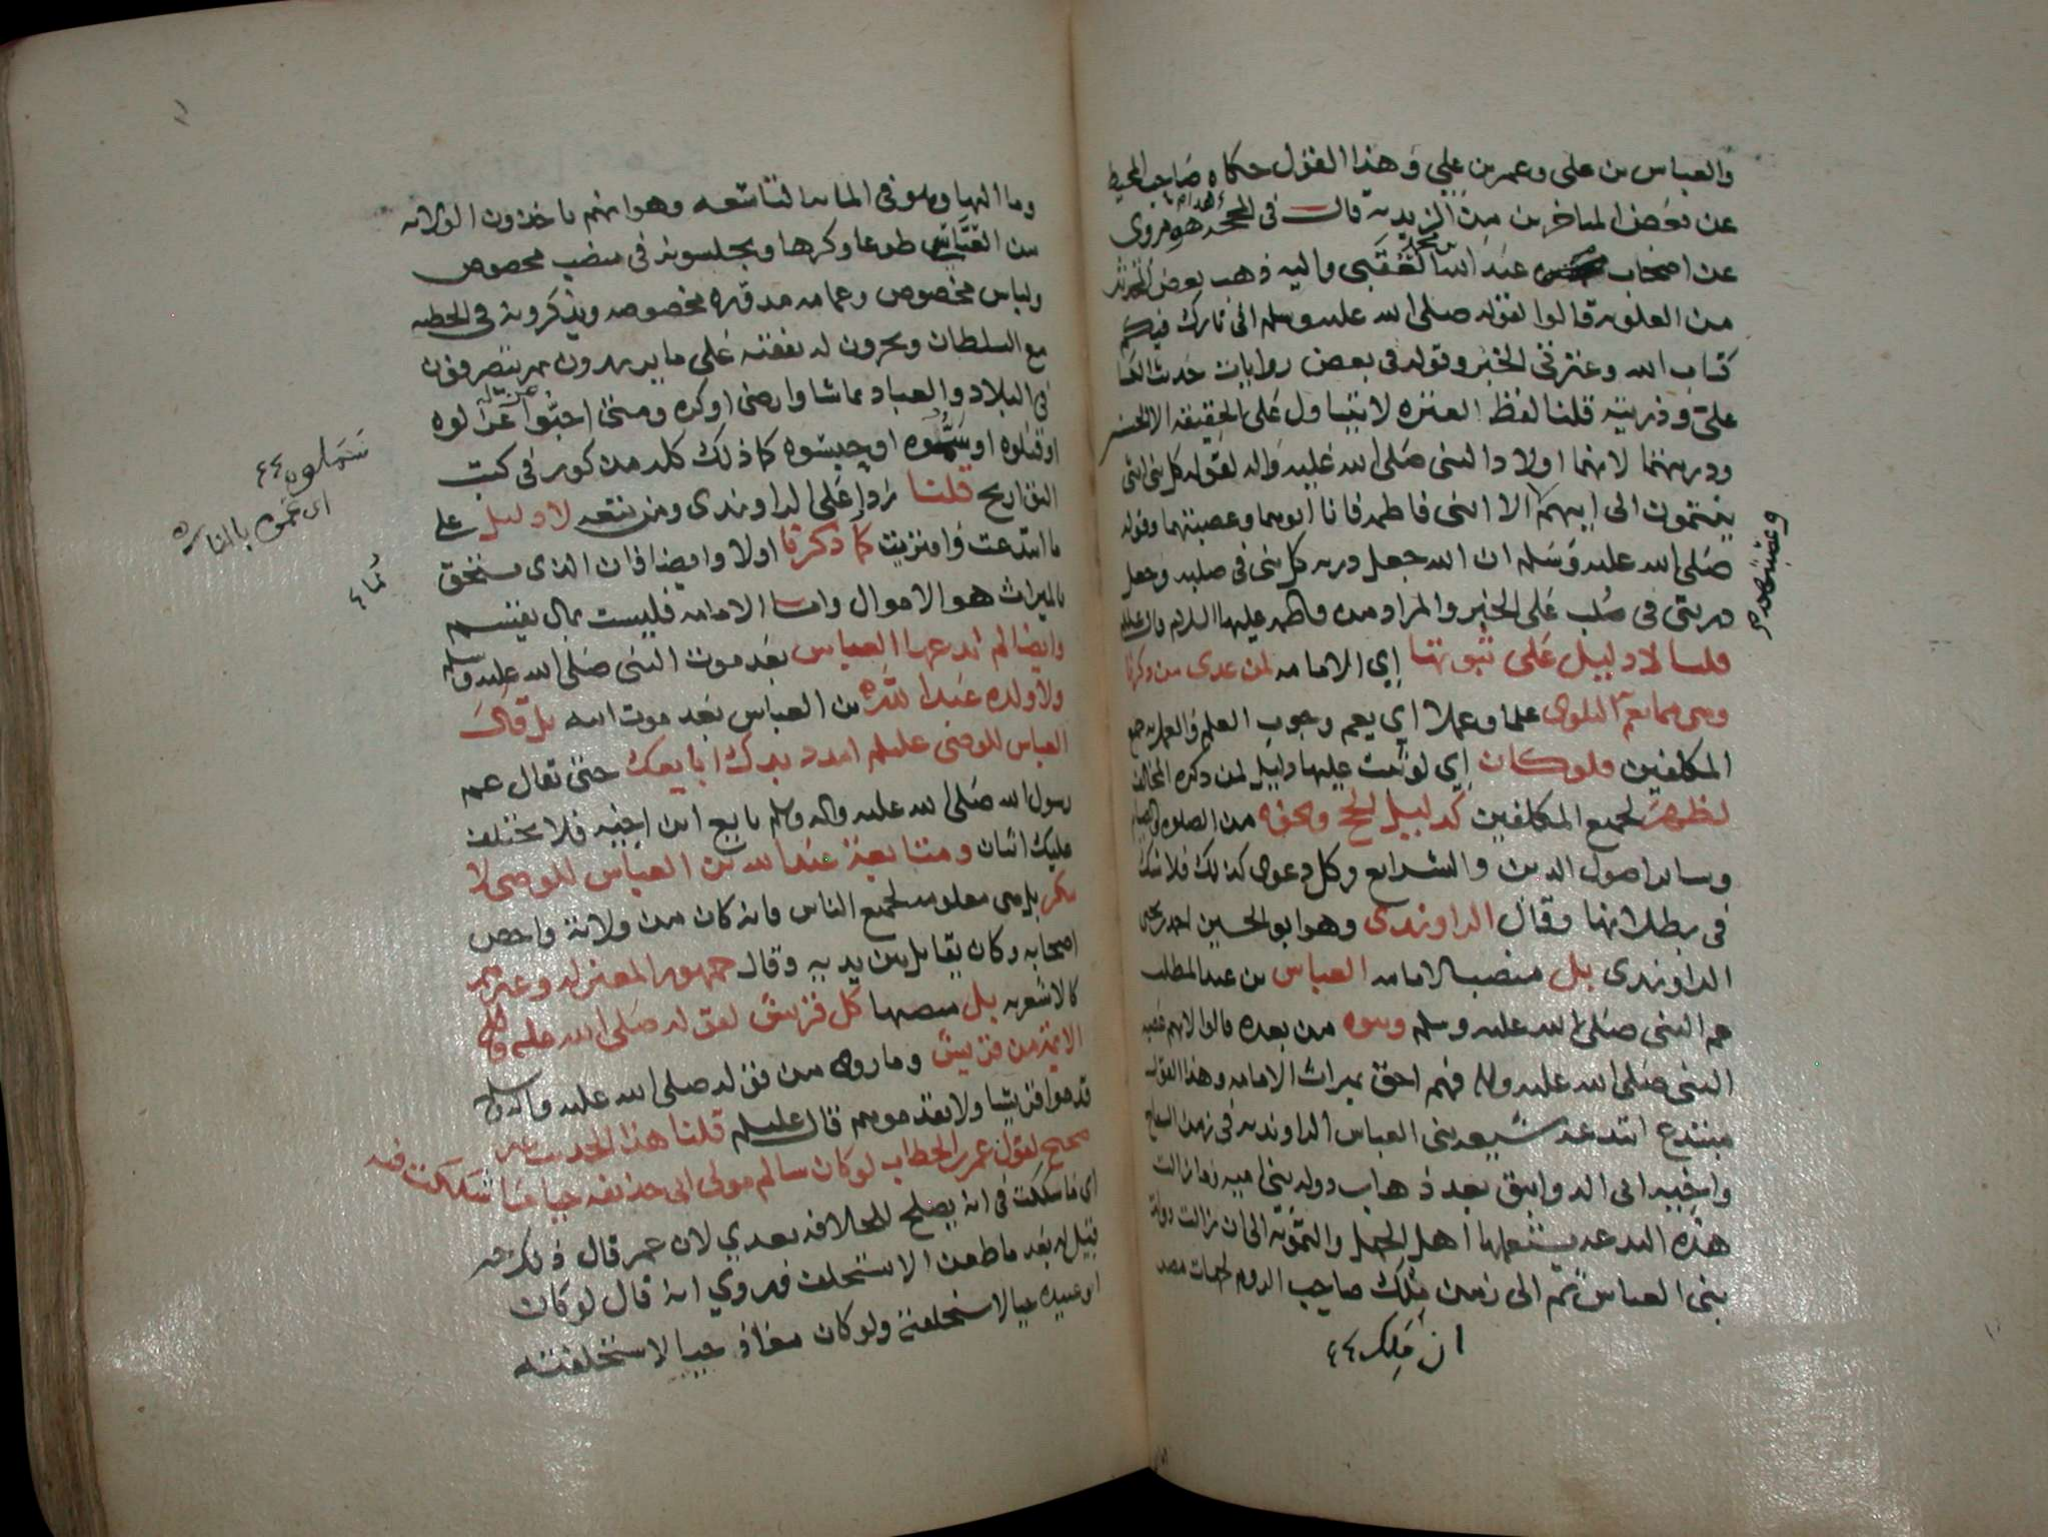 والعباس بن علي وعمر بن علي وهذا القول حكاه صاحب المحيط
عن بعض المتاخرين من الزيدية قال في المحجة هو مروي
عن اصحاب عبد الله بن محمد العقيقي واليه ذهب بعض
من العلوية قالوا لقوله صلى الله عليه وسلم اني تارك فيكم
كتاب الله وعترتي الخبر وقوله في بعض روايات حديث الكسا
علي وذريته قلنا لفظ العترة لا يتناول على الحقيقة الا الحسنين
وذريتهما لانهما اولاد النبي صلى الله عليه واله لقوله كل بني انثى
ينتمون الى ابيهم الا ابني فاطمة فانا ابوهما وعصبتهما وقوله
صلى الله عليه وسلم ان الله جعل ذرية كل نبي في صلبه وجعل
ذريتي في صلب علي الخبر والمراد من فاطمة عليها السلام
قلنا لا دليل على ثبوتها اي الامامة لمن عدى من ذكرنا
وهي مما تعم البلوى علما وعملا اي يعم وجوب العلم والعمل به جميع
المكلفين فلو كان اي لو ثبت عليها دليل لمن ذكره المخالف
لظهر لجميع المكلفين كدليل الحج ونحوه من الصلوة والصيام
وساير اصول الدين والشرايع وكل دعوى كذلك فلا شك
في بطلانها وقال الراوندي وهو ابو الحسين احمد بن يحيى
الراوندي بل منصب الامامة العباس بن عبد المطلب
عم النبي صلى الله عليه وسلم وبنوه من بعده قالوا لانهم عصبة
النبي صلى الله عليه واله فهم احق بميراث الامامة وهذا القول
مبتدع ابتدعه شيعة بني العباس الراوندية في زمن السفاح
واخيه ابي الدوانيق بعد ذهاب دولة بني امية وما زالت
هذه البدعة ينتحلها اهل الجهل والتمويه الى ان زالت دولة
بني العباس ثم الى زمن ملك صاحب الروم لجهات مصر
ان ملك
وعصبتهما
وما اليها وهو في الماية التاسعة وهو انهم ياخذون الولاية
من العباسي طوعا وكرها ويجلسونه في منصب مخصوص
ولباس مخصوص وعمامة مدورة مخصوصة ويذكرونه في الخطبة
مع السلطان ويجرون له نفقته على ما يريدون ثم يتصرفون
في البلاد والعباد بما شاوا رضي او كره ومتى احبوا عزله عزلوه
او قتلوه او سملوه او حبسوه كما ذلك كله مذكور في كتب
التواريخ قلنا ردا على الراوندي ومن تبعه لا دليل على
ما ابتدعت وافتريت كما ذكرنا اولا وايضا فان الذي يستحق
بالميراث هو الاموال واما الامامة فليست بمال يقتسم
وايضا لم يدعها العباس بعد موت النبي صلى الله عليه وسلم
ولا ولده عبد الله بن العباس بعد موت ابيه بل قال
العباس للوصي عليلم امدد يدك ابايعك حتى يقال عم
رسول الله صلى الله عليه واله وسلم بايع ابن اخيه فلا يختلف
عليك اثنان ومتابعة عبد الله بن العباس للوصي لا
تنكر بل هي معلومة لجميع الناس فانه كان من ولاته واخص
اصحابه وكان يقاتل بين يديه وقال جمهور المعتزلة وغيرهم
كالاشعرية بل منصبها كل قريش لقوله صلى الله عليه واله
الائمة من قريش وما رووه من قوله صلى الله عليه واله وسلم
قدموا قريشا ولا تقدموهم قال عليلم قلنا هذا الحديث غير
صحيح لقول عمر بن الخطاب لو كان سالم مولى ابي حذيفة حيا ما شككت فيه
اي ما شككت في انه يصلح للخلافة بعدي لان عمر قال ذلك حين
قيل له بعد ما طعن الا تستخلف فروي انه قال لو كان
ابو عبيدة حيا لاستخلفته ولو كان معاذ حيا لاستخلفته
سملوه
اي عموه بالنار